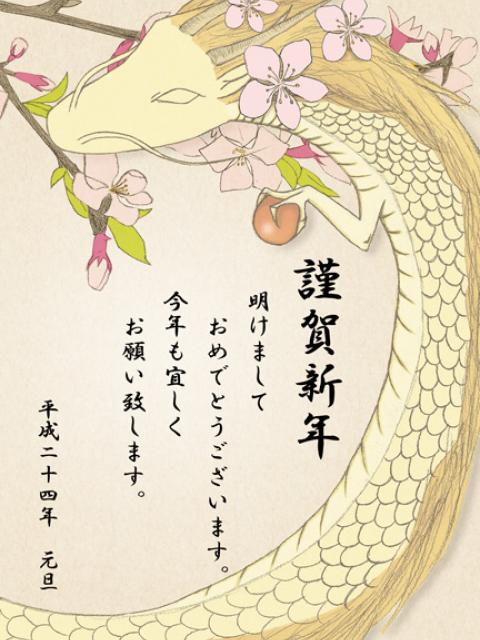 謹賀新年
明けまして
おめでとうございます。
今年も宜しく
お願い致します。
平成二十四年 元旦